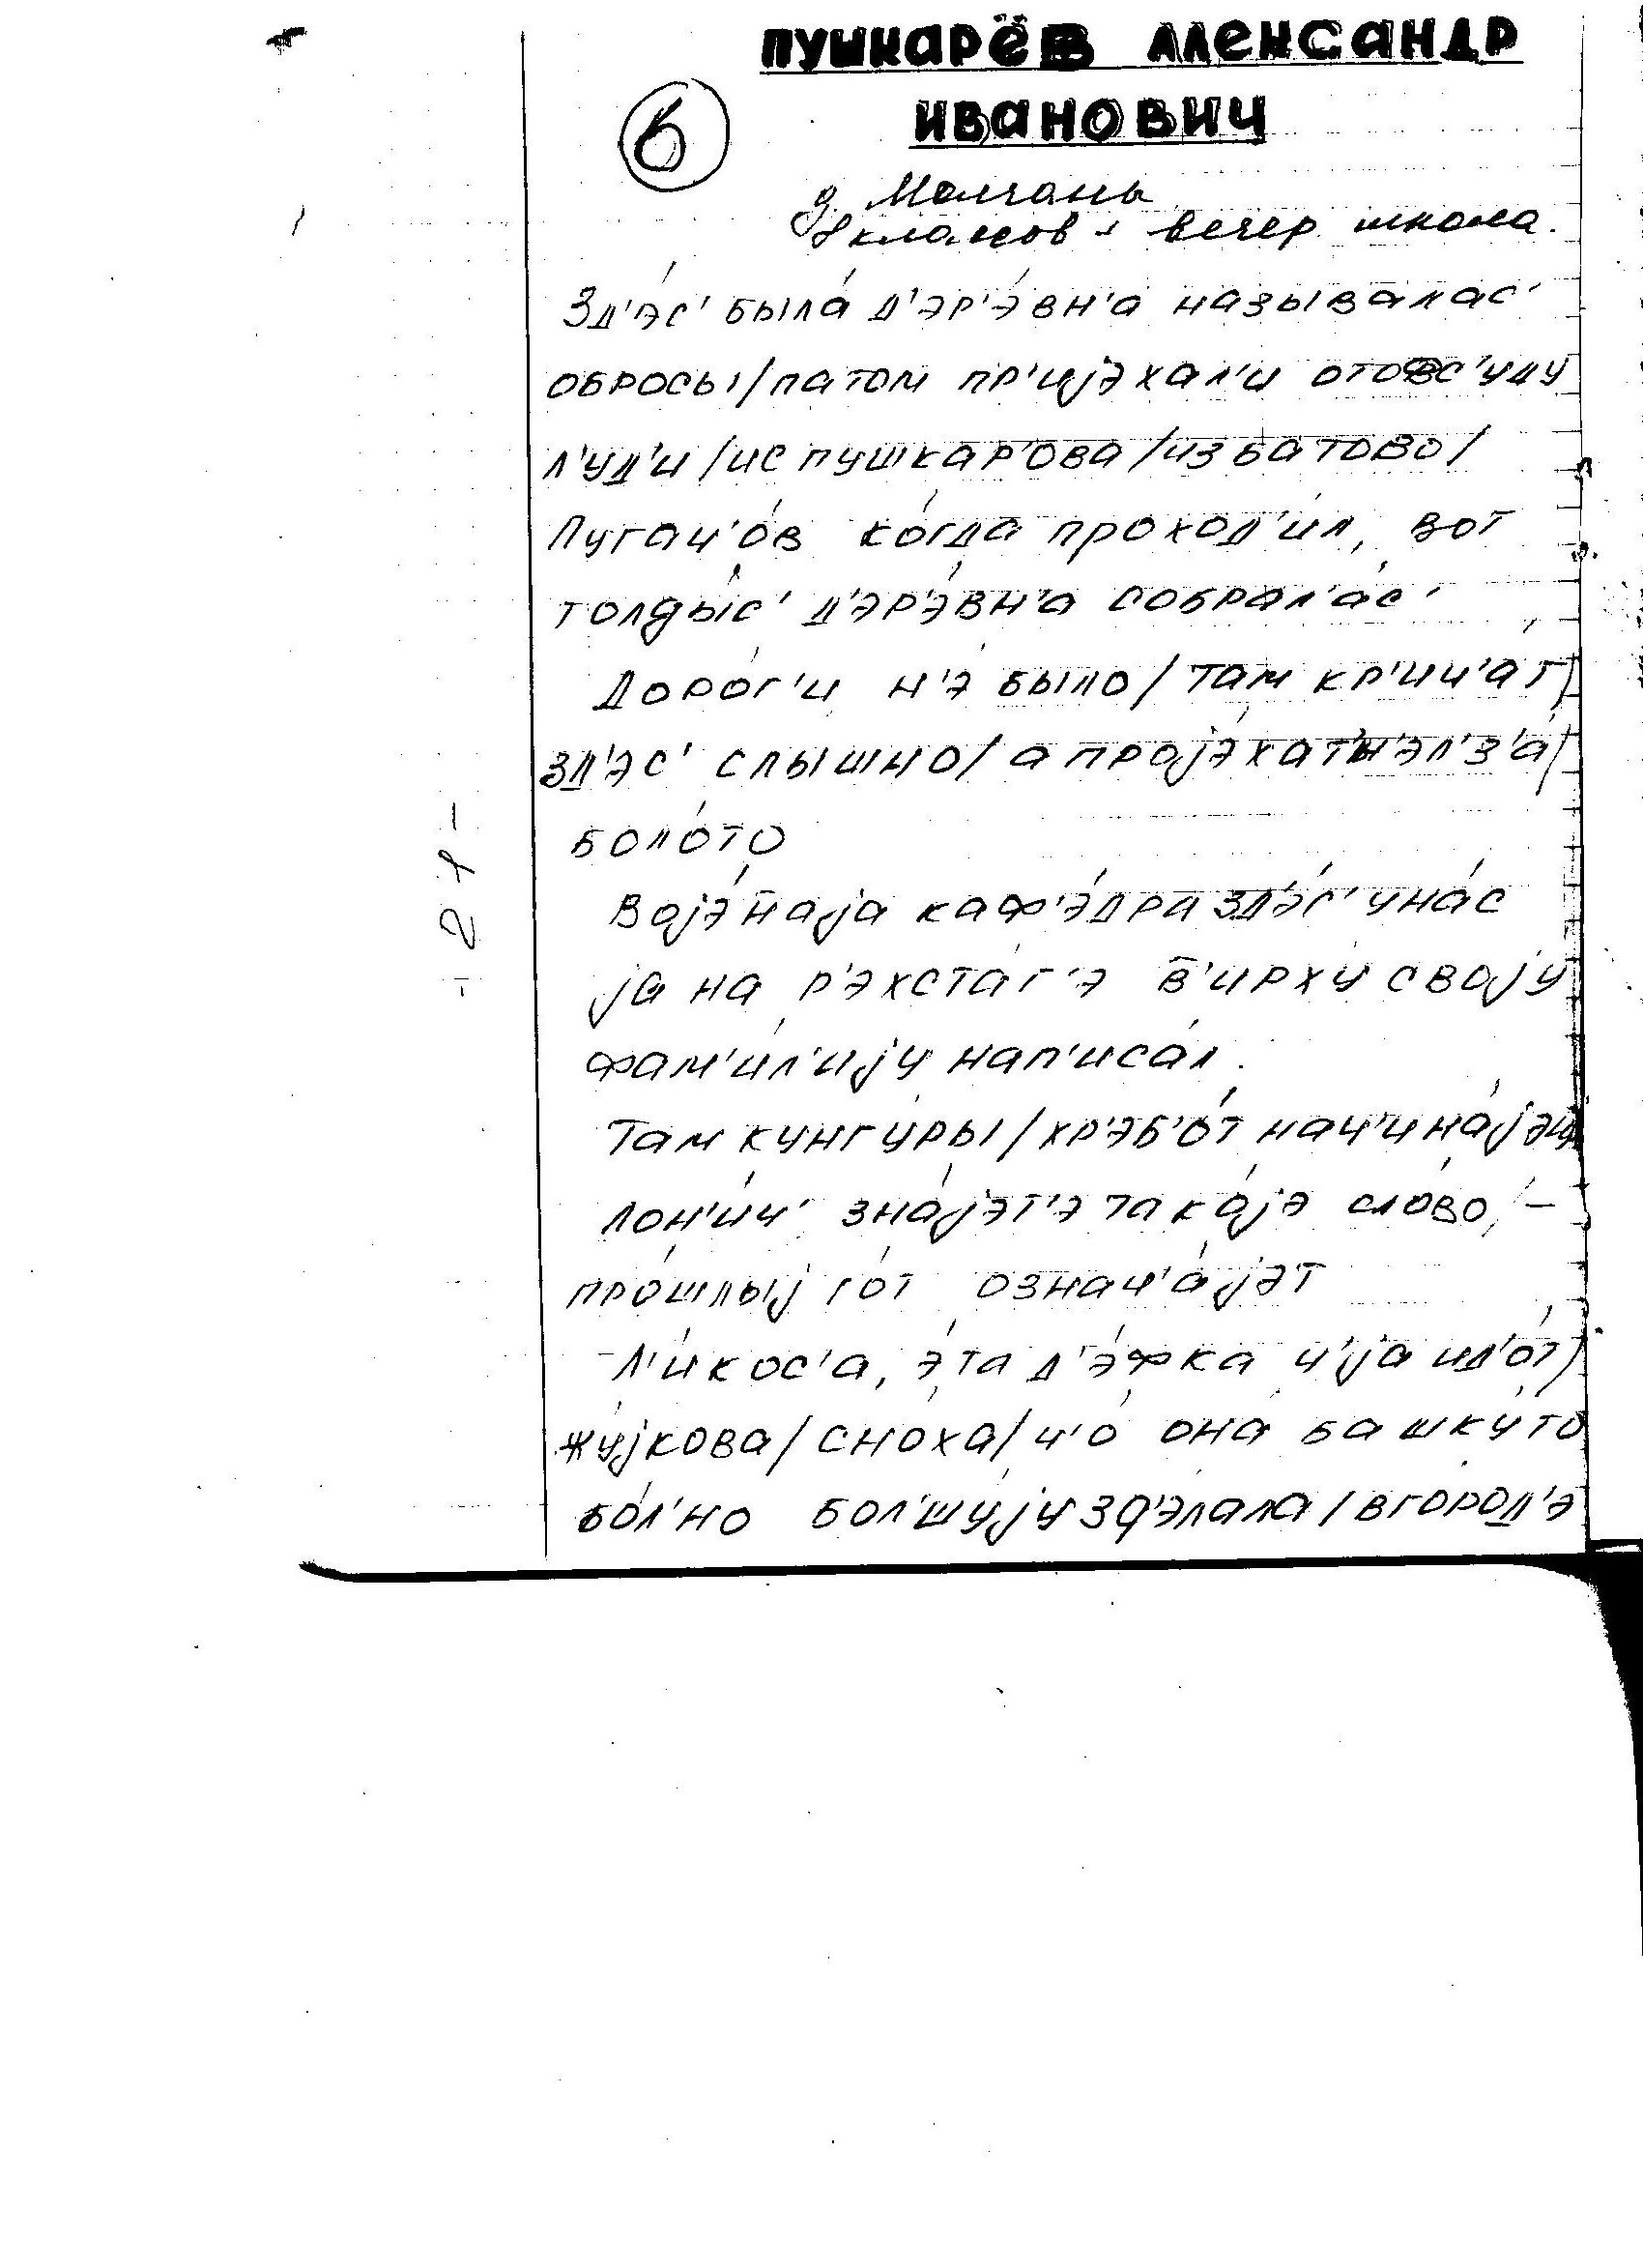 ПУШКАРЁВ АЛЕКСАНДР
ИВАНОВИЧ
6
д. Молчаны
8 классов + вечер. школа.
Зд'э́с' была́ д'эр'э́вн'а называлас'
обросы/патом пр'иjэхал'и отовс'уду
л'уд'и/ис пушкар'ова/из батово/
Пугач'о́в ко́гда проход'и́л, вот
толды́с' д'эр'э́вн'а собрал'а́с'
Доро́г'и н'э́ было/там кр'ич'а́т/
зд'эс' слышно/а проjэ́хат' н'эл'з'а́/
боло́то
Воjэ́н̄аjа каф'э́дра зд'э́с' у на́с
jа на р'эхста́г'э в̄'ирху́ своjу́
фам'и́л'иjу нап'иса́л.
Там кунгу́ры/хр'эб'о́т нач'ина́jэц
лон'и́ч' зна́jэт'э тако́jэ сло́во, –
про́шлыj го́т означ'а́jэт
Л'и́кос'а, э́та д'э́фка ч'jа ид'о́т/
жу́jкова/сно́ха/ч'о́ она́ башку́ то
бо́л'но бол'шу́jу зд'элала/в город'э
- 21 -